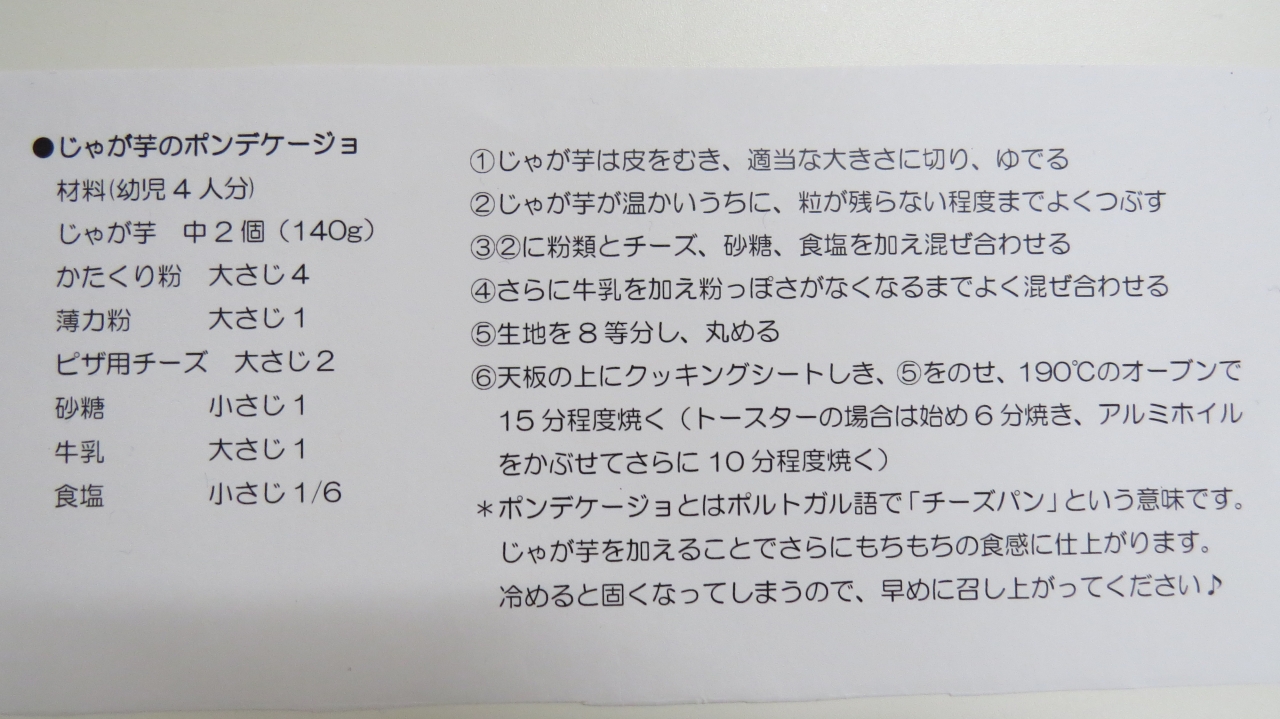 ●じゃが芋のポンデケージョ
材料(幼児4人分)
じゃが芋 中2個（140g）
かたくり粉 大さじ4
薄力粉 大さじ1
ピザ用チーズ 大さじ2
砂糖 小さじ1
牛乳 大さじ1
食塩 小さじ1/6
①じゃが芋は皮をむき、適当な大きさに切り、ゆでる
②じゃが芋が温かいうちに、粒が残らない程度までよくつぶす
③②に粉類とチーズ、砂糖、食塩を加え混ぜ合わせる
④さらに牛乳を加え粉っぽさがなくなるまでよく混ぜ合わせる
⑤生地を8等分し、丸める
⑥天板の上にクッキングシートしき、⑤をのせ、190℃のオーブンで
15分程度焼く（トースターの場合は始め6分焼き、アルミホイル
をかぶせてさらに10分程度焼く）
＊ポンデケージョとはポルトガル語で「チーズパン」という意味です。
じゃが芋を加えることでさらにもちもちの食感に仕上がります。
冷めると固くなってしまうので、早めに召し上がってください♪